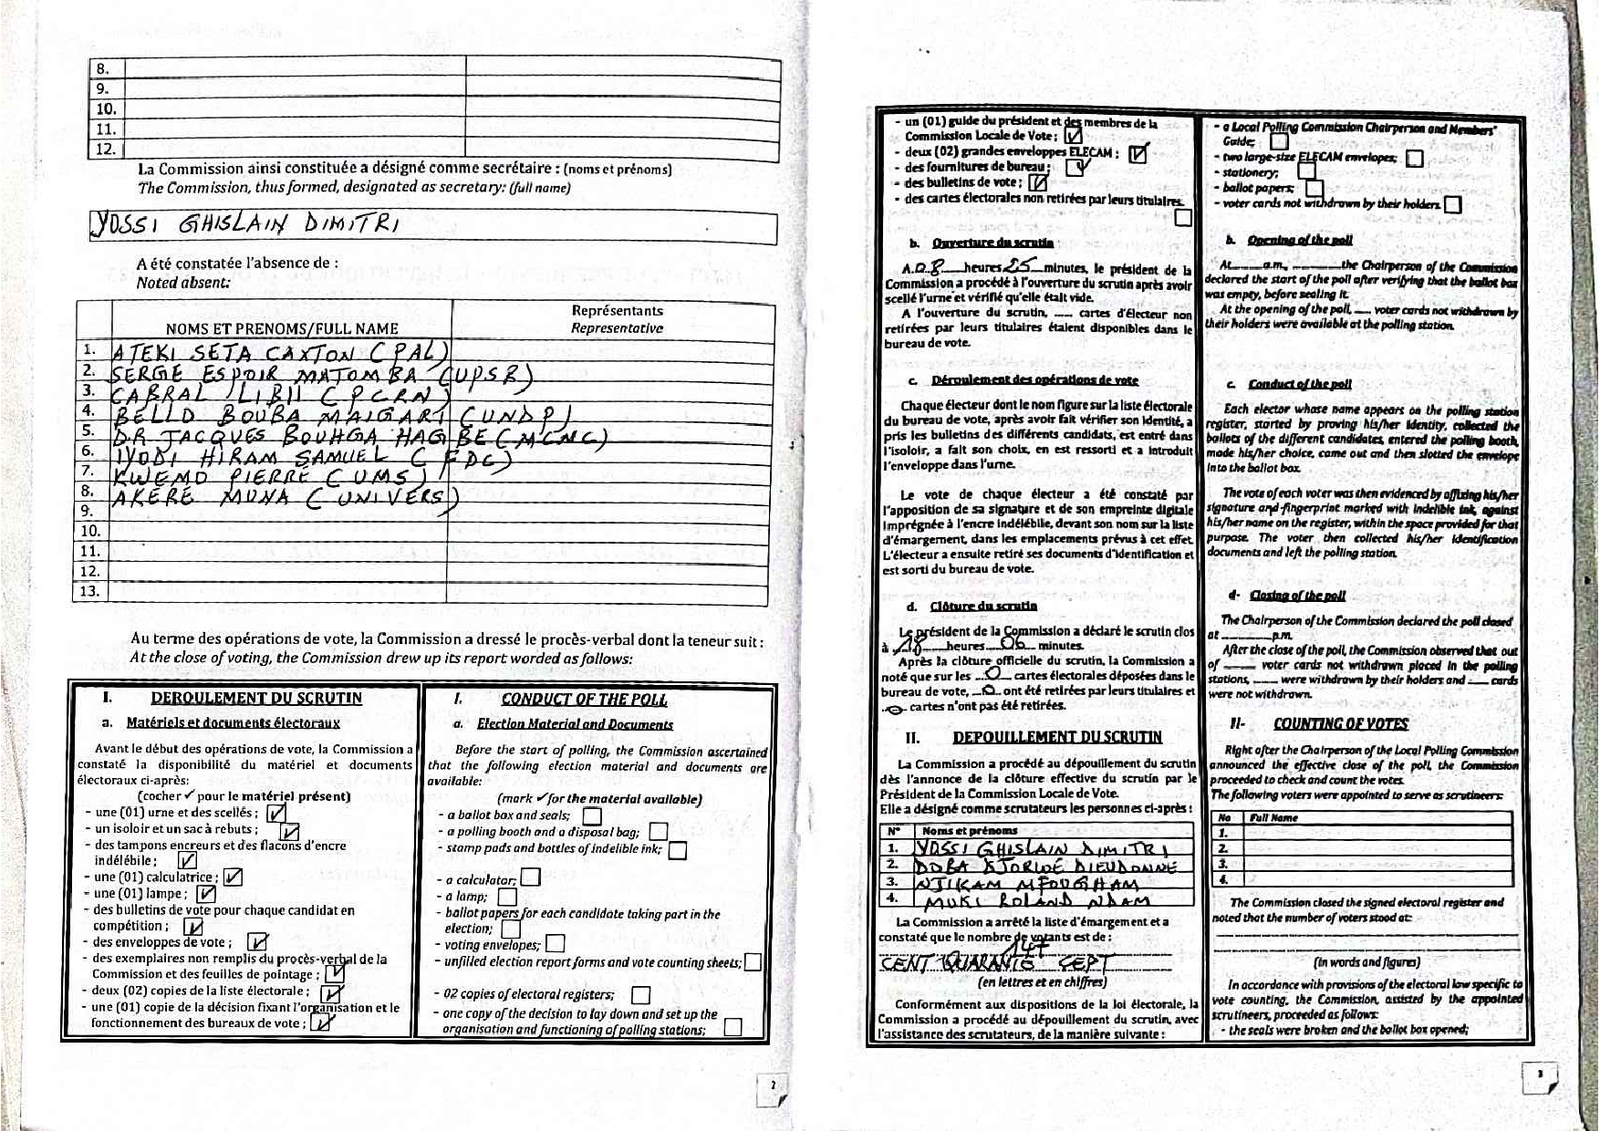 8.
9.
10.
11.
12.
La Commission ainsi constituée a désigné comme secrétaire : (noms et prénoms)
The Commission, thus formed, designated as secretary: (full name)
YOSSI GHISLAIN DIMITRI
A été constatée l'absence de :
Noted absent:
NOMS ET PRENOMS/FULL NAME
Représentants
Representative
1. ATEKI SETA CAXTON (PAL)
2. SERGE ESPOIR MATOMBA (UPSR)
3. CABRAL LIBII (PCRN)
4. BELLO BOUBA MAIGARI (UNDP)
5. DR JACQUES BOUHGA HAGBE (MCNC)
6. IYODI HIRAM SAMUEL (FDC)
7. KWEMO PIERRE (UMS)
8. AKERE MUNA (UNIVERS)
9.
10.
11.
12.
13.
Au terme des opérations de vote, la Commission a dressé le procès-verbal dont la teneur suit :
At the close of voting, the Commission drew up its report worded as follows:
I. DEROULEMENT DU SCRUTIN
a. Matériels et documents électoraux
Avant le début des opérations de vote, la Commission a
constaté la disponibilité du matériel et documents
électoraux ci-après:
(cocher ✓ pour le matériel présent)
- une (01) urne et des scellés ; ☑
- un isoloir et un sac à rebuts ; ☑
- des tampons encreurs et des flacons d'encre
indélébile ; ☑
- une (01) calculatrice ; ☑
- une (01) lampe ; ☑
- des bulletins de vote pour chaque candidat en
compétition ; ☑
- des enveloppes de vote ; ☑
- des exemplaires non remplis du procès-verbal de la
Commission et des feuilles de pointage ; ☑
- deux (02) copies de la liste électorale ; ☑
- une (01) copie de la décision fixant l'organisation et le
fonctionnement des bureaux de vote ; ☑
I. CONDUCT OF THE POLL
a. Election Material and Documents
Before the start of polling, the Commission ascertained
that the following election material and documents are
available:
(mark ✓ for the material available)
- a ballot box and seals; ☐
- a polling booth and a disposal bag; ☐
- stamp pads and bottles of indelible ink; ☐
- a calculator; ☐
- a lamp; ☐
- ballot papers for each candidate taking part in the
election; ☐
- voting envelopes; ☐
- unfilled election report forms and vote counting sheets; ☐
- 02 copies of electoral registers; ☐
- one copy of the decision to lay down and set up the
organisation and functioning of polling stations; ☐
2
- un (01) guide du président et des membres de la
Commission Locale de Vote ; ☑
- deux (02) grandes enveloppes ELECAM ; ☑
- des fournitures de bureau ; ☑
- des bulletins de vote ; ☑
- des cartes électorales non retirées par leurs titulaires.
☐
b. Ouverture du scrutin
A 08 heures 25 minutes, le président de la
Commission a procédé à l'ouverture du scrutin après avoir
scellé l'urne et vérifié qu'elle était vide.
A l'ouverture du scrutin, ...... cartes d'électeur non
retirées par leurs titulaires étaient disponibles dans le
bureau de vote.
c. Déroulement des opérations de vote
Chaque électeur dont le nom figure sur la liste électorale
du bureau de vote, après avoir fait vérifier son identité, a
pris les bulletins des différents candidats, est entré dans
l'isoloir, a fait son choix, en est ressorti et a introduit
l'enveloppe dans l'urne.
Le vote de chaque électeur a été constaté par
l'apposition de sa signature et de son empreinte digitale
imprégnée à l'encre indélébile, devant son nom sur la liste
d'émargement, dans les emplacements prévus à cet effet.
L'électeur a ensuite retiré ses documents d'identification et
est sorti du bureau de vote.
d. Clôture du scrutin
Le président de la Commission a déclaré le scrutin clos
à 18 heures 06 minutes.
Après la clôture officielle du scrutin, la Commission a
noté que sur les 0 cartes électorales déposées dans le
bureau de vote, 0 ont été retirées par leurs titulaires et
0 cartes n'ont pas été retirées.
II. DEPOUILLEMENT DU SCRUTIN
La Commission a procédé au dépouillement du scrutin
dès l'annonce de la clôture effective du scrutin par le
Président de la Commission Locale de Vote.
Elle a désigné comme scrutateurs les personnes ci-après :
N° Noms et prénoms
1. YOSSI GHISLAIN DIMITRI
2. DOBA DIEUDONNE
3. NJIKAM MFOUGHAM
4. MUKI ROLAND NDAM
La Commission a arrêté la liste d'émargement et a
constaté que le nombre de votants est de :
147
CENT QUARANTE CEPT
(en lettres et en chiffres)
Conformément aux dispositions de la loi électorale, la
Commission a procédé au dépouillement du scrutin, avec
l'assistance des scrutateurs, de la manière suivante :
- a Local Polling Commission Chairperson and Members'
Guide; ☐
- two large-size ELECAM envelopes; ☐
- stationery; ☐
- ballot papers; ☐
- voter cards not withdrawn by their holders. ☐
b. Opening of the poll
At ...... a.m, ...... the Chairperson of the Commission
declared the start of the poll after verifying that the ballot box
was empty, before sealing it.
At the opening of the poll, ...... voter cards not withdrawn by
their holders were available at the polling station.
c. Conduct of the poll
Each elector whose name appears on the polling station
register, started by proving his/her identity, collected the
ballots of the different candidates, entered the polling booth,
made his/her choice, came out and then slotted the envelope
into the ballot box.
The vote of each voter was then evidenced by affixing his/her
signature and fingerprint marked with indelible ink, against
his/her name on the register, within the space provided for that
purpose. The voter then collected his/her identification
documents and left the polling station.
d- Closing of the poll
The Chairperson of the Commission declared the poll closed
at ...... p.m.
After the close of the poll, the Commission observed that out
of ...... voter cards not withdrawn placed in the polling
stations, ...... were withdrawn by their holders and ...... cards
were not withdrawn.
II- COUNTING OF VOTES
Right after the Chairperson of the Local Polling Commission
announced the effective close of the poll, the Commission
proceeded to check and count the votes.
The following voters were appointed to serve as scrutineers:
No Full Name
1.
2.
3.
4.
The Commission closed the signed electoral register and
noted that the number of voters stood at:
(in words and figures)
In accordance with provisions of the electoral law specific to
vote counting, the Commission, assisted by the appointed
scrutineers, proceeded as follows:
- the seals were broken and the ballot box opened;
3